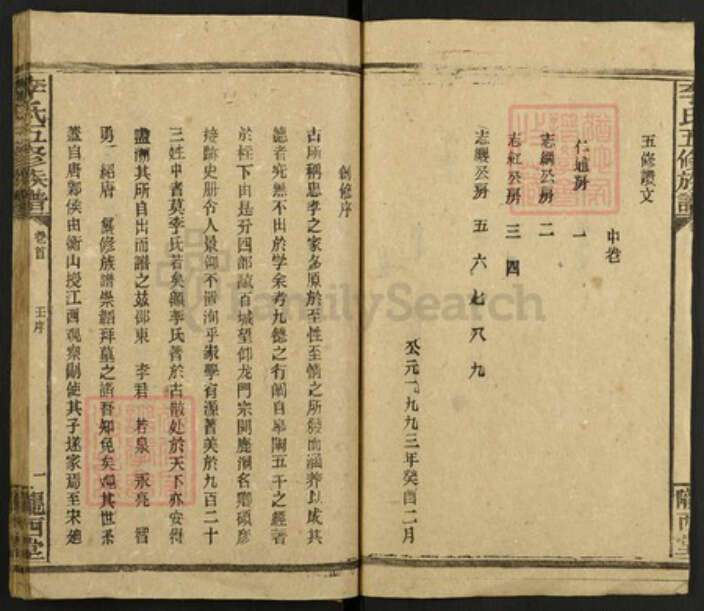 李氏五修族譜
隴西堂
五修讚文
中卷
仁迪房 一
志綱公房 二
志紀公房 三 四
志纓公房 五 六 七 八 九
公元一九九三年癸酉二月
創修序
古所稱忠孝之家多原於至性至情之所發而涵養以成其
德者究無不出於學余考九德之行闡自皋陶五千之經著
於柱下由是分四部藏百城望仰龙門宗開鹿洞名鄉碩彦
接跡史册令人景仰不置洵乎家學有源著美於九百二十
三姓中者莫李氏若矣顧李氏著於古散处於天下亦安得
盡溯其所自出而譜之兹邵東 李君 若泉 永亮 晋
勇 紹唐 纂修族譜崇韜拜墓之誚吾知免矣觀其世系
蓋自唐鄴侯由衡山授江西觀察副使其子遂家焉至宋
李氏五修族譜
卷首
王序
一
隴西堂
FamilySearch